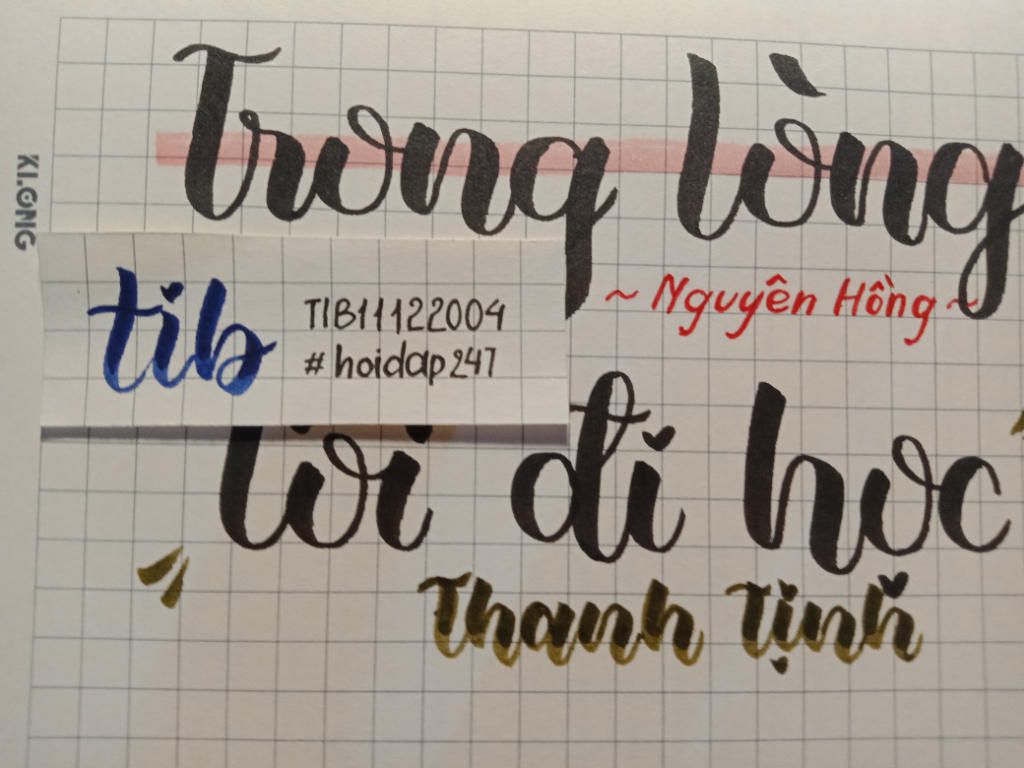 Trong lòng
~ Nguyên Hồng ~
KLONG
tib
TIB11122004
#hoidap247
tôi đi học
Thanh Tịnh